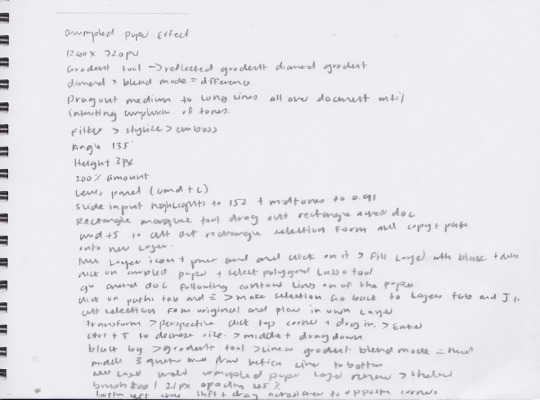 crumpled paper Effect
1260 x 720px
Gradent tool → reflected gradent diamond gradent
diamond > blend mode = difference
Drag out medium to long lines all over document until
intersting complexion of tones.
Filter > stylize > emboss
Angle 135
Height 3px
200% amount
Levels panel (cmd + L)
Slide input highlights to 152 + midtones to 0.91
Rectangle marquee tool drag out rectangle across doc
cmd + J to cut out rectangle selection form and copy + paste
onto new layer.
New Layer icon + and click on it > fill layer with black +
click on crumpled paper + select polygonal Lasso tool
go around doc following contour lines on of the paper
click on paths tab and > make selection. Go back to layers tab and J to
cut selection from original and place in own layer
transform > perspective click top corner + drag in > Enter
ctrl + T to decrease size > middle + drag down
black bg > gradent tool > linear gradent blend mode =
middle 3 and draw line to bottom
new layer crumpled paper layer >
brush tool 21px opacity 45%
bottom left corner shift + drag across to opposite corner